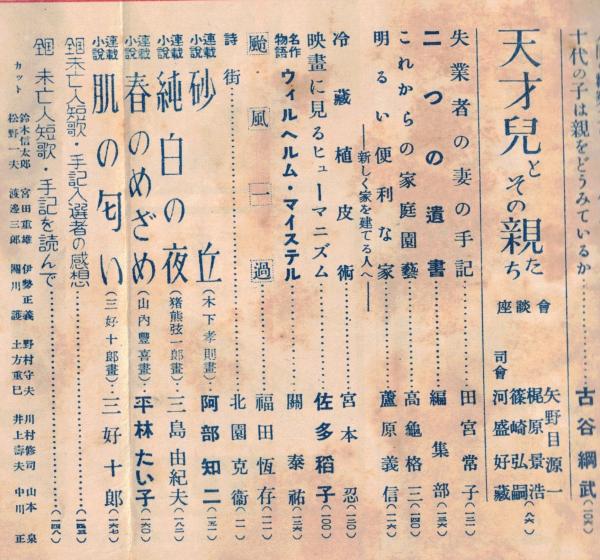 十代の子は親をどうみているか 古谷綱武
天才兒とその親たち 座談會
矢野目源一
梶原景浩
篠崎弘嗣
司會 河盛好藏
失業者の妻の手記 田宮常子
二つの遺書 編集部
これからの家庭園藝 高龜格三
明るい便利な家 ―新しく家を建てる人へ― 蘆原義信
冷藏植皮術 宮本忍
映畫に見るヒューマニズム 佐多稻子(一〇〇)
名作物語 ウィルヘルム・マイステル 關泰祐
颱風一過 福田恆存
詩 街 北園克衞
連載小說 砂丘(木下孝則畫) 阿部知二
連載小說 純白の夜(猪熊弦一郎畫) 三島由紀夫
連載小說 春のめざめ(山內豐喜畫) 平林たい子
連載小說 肌の匂い(三好十郎畫) 三好十郎
未亡人短歌・手記入選者の感想
未亡人短歌・手記を読んで
カット 鈴木信太郎 宮田重雄 伊勢正義 野村守夫 川村修司 山本泉
松野一夫 渡邊三郎 關川護 土方重巳 井上壽夫 中川正